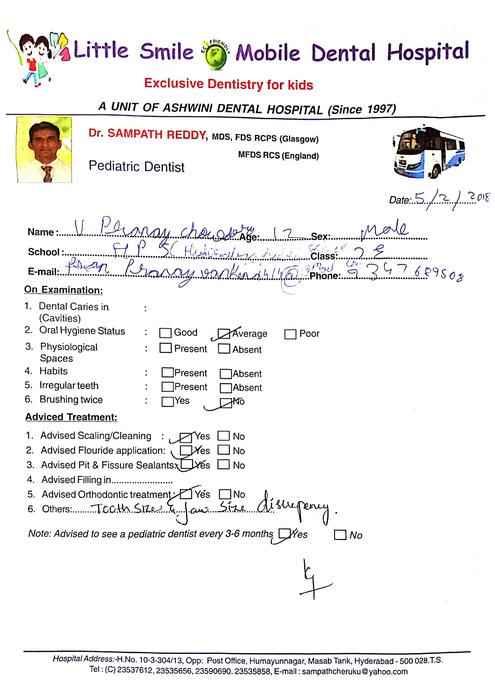 Little Smile ECO FRIENDLY Mobile Dental Hospital
Exclusive Dentistry for kids
A UNIT OF ASHWINI DENTAL HOSPITAL (Since 1997)
Dr. SAMPATH REDDY, MDS, FDS RCPS (Glasgow)
MFDS RCS (England)
Pediatric Dentist
Date: 5/2/2018
Name: V Pranay chowdary Age: 12 Sex: Male
School: H P S Class: 7 E
E-mail: Phone: 9347689508
On Examination:
1. Dental Caries in :
(Cavities)
2. Oral Hygiene Status : Good Average Poor
3. Physiological : Present Absent
Spaces
4. Habits : Present Absent
5. Irregular teeth : Present Absent
6. Brushing twice : Yes No
Adviced Treatment:
1. Advised Scaling/Cleaning : Yes No
2. Advised Flouride application: Yes No
3. Advised Pit & Fissure Sealants: Yes No
4. Advised Filling in......................
5. Advised Orthodontic treatment: Yes No
6. Others:...... Tooth size & Jaw size discrepency.
Note: Advised to see a pediatric dentist every 3-6 months Yes No
Hospital Address:-H.No. 10-3-304/13, Opp: Post Office, Humayunnagar, Masab Tank, Hyderabad - 500 028.T.S.
Tel : (C) 23537612, 23535656, 23590690. 23535858, E-mail : sampathcheruku@yahoo.com